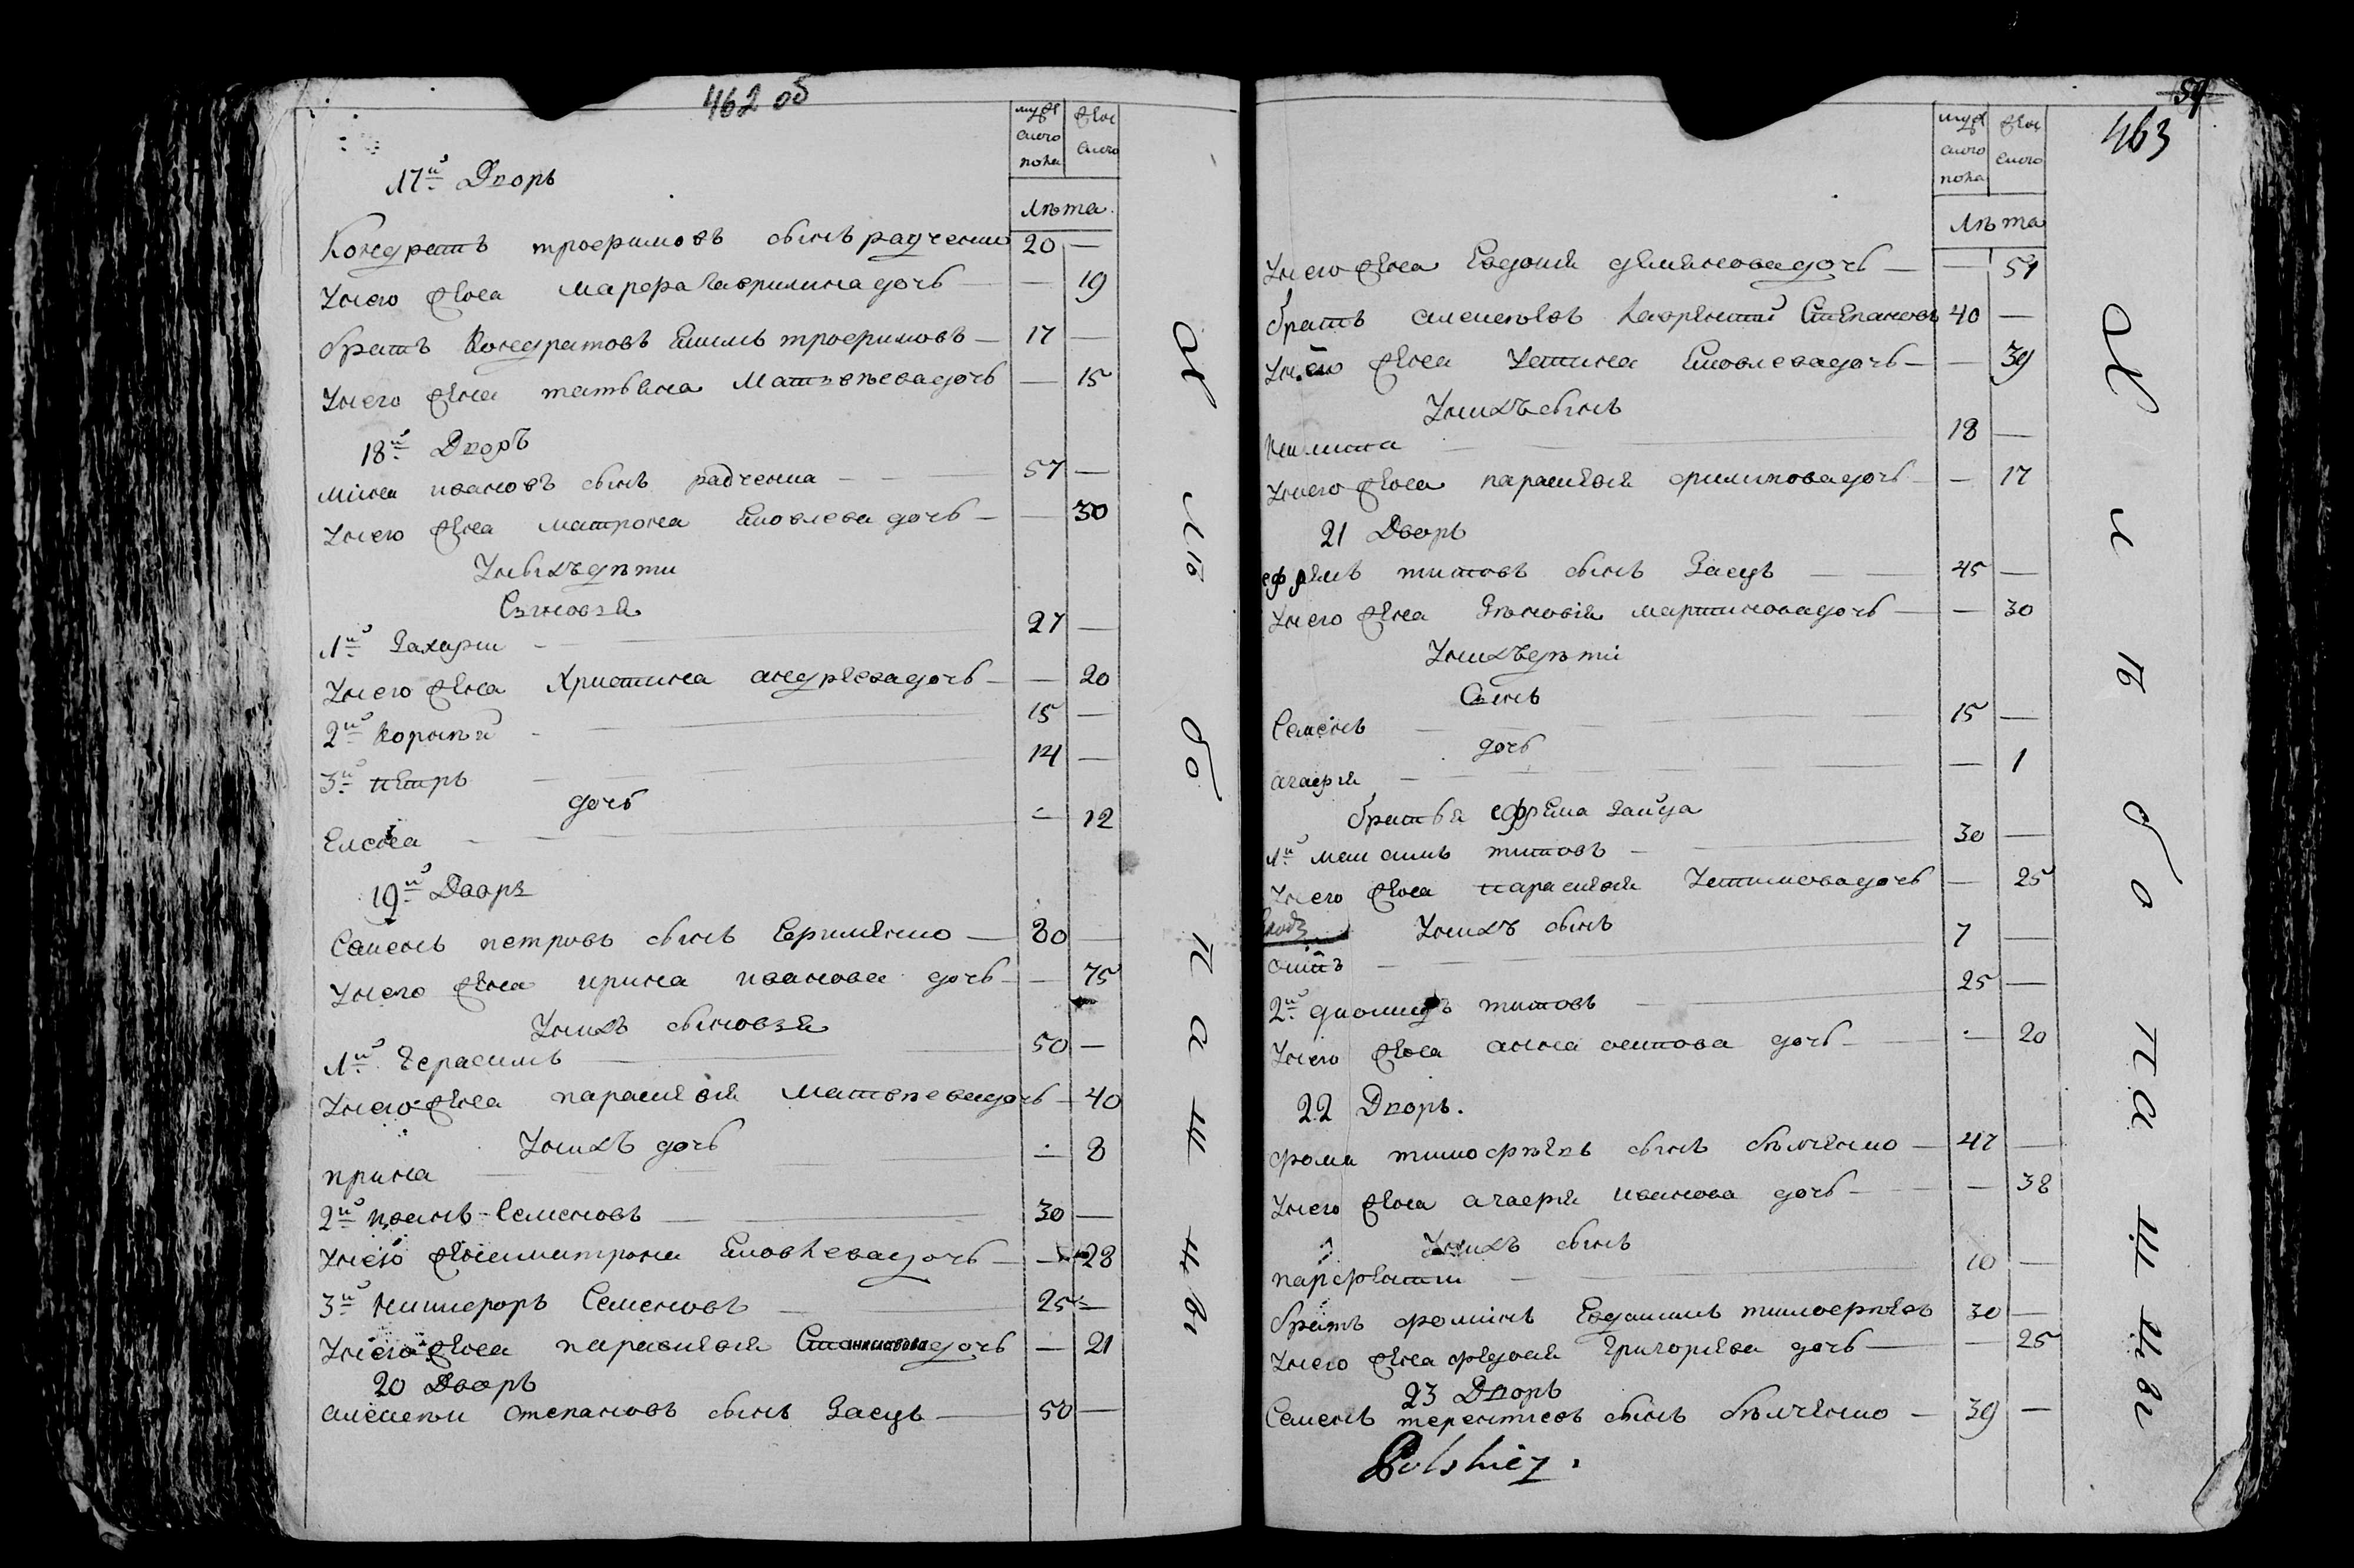 462 об
мужескаго пола
женскаго
Лѣта
17й Дворъ
Кондратъ трофимовъ сынъ радченко 20 —
У него жена марфа Гаврилина дочь — 19
братъ Кондратовъ Емель трофимовъ — 17 —
У него жена татьяна Матвѣева дочь — 15
18й Дворъ
мина ивановъ сынъ радченка — 57 —
У него жена матрона Яковлева дочь — 30
У ныхъ дѣти
Сыновья
1й Захари — 27 —
У него жена Христина андреева дочь — 20
2й Корнѣй — 15 —
3й петръ — 14 —
дочь
Елена — 12
19й Дворъ
Семенъ петровъ сынъ 80 —
У него жена ирина иванова дочь — 75
У нихъ сыновья
1й Герасимъ — 50 —
У него жена парасковья матвѣева дочь — 40
У нихъ дочь
ирина — 8
2й иванъ Семеновъ — 30 —
У него жена матрона Яковлева дочь — 28
3й никифоръ Семеновъ — 25 —
У него жена парасковья Станиславова дочь — 21
20 Дворъ
алексѣи степановъ сынъ Заецъ — 50 —
Х л ѣ б о п а ш ц ы
54
463
мужескаго пола
женскаго
Лѣта
У него жена Евдокия демянова дочь — 51
братъ алексѣевъ Лаврентий Степановъ 40 —
У него жена Устина Яковлева дочь — 39
У нихъ сынъ
никита — 18 —
У него жена парасковья филипова дочь — 17
21 Дворъ
ефремъ титовъ сынъ Заецъ — 45 —
У него жена Зѣновия мартинова дочь — 30
У нихъ дѣти
Сынъ
Семенъ — 15 —
дочь
агафия — 1
братья ефрема зайца
1й максимъ титовъ — 30 —
У него жена парасковья Устимова дочь — 25
У нихъ сынъ
7 —
2й диомидъ титовъ — 25 —
У него жена анна осипова дочь — 20
22 Дворъ.
фома тимофѣевъ сынъ бѣличенко — 47 —
У него жена агафия иванова дочь — 38
У нихъ сынъ
парфентии — 10 —
братъ фоминъ Евдокимъ тимофѣевъ 30 —
У него жена федосия Григорьева дочь — 25
23 Дворъ
Семенъ терентиевъ сынъ бѣличенко — 39 —
Х л ѣ б о п а ш ц ы